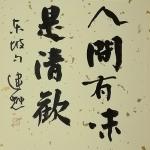 人間有味
是清歡
東坡句